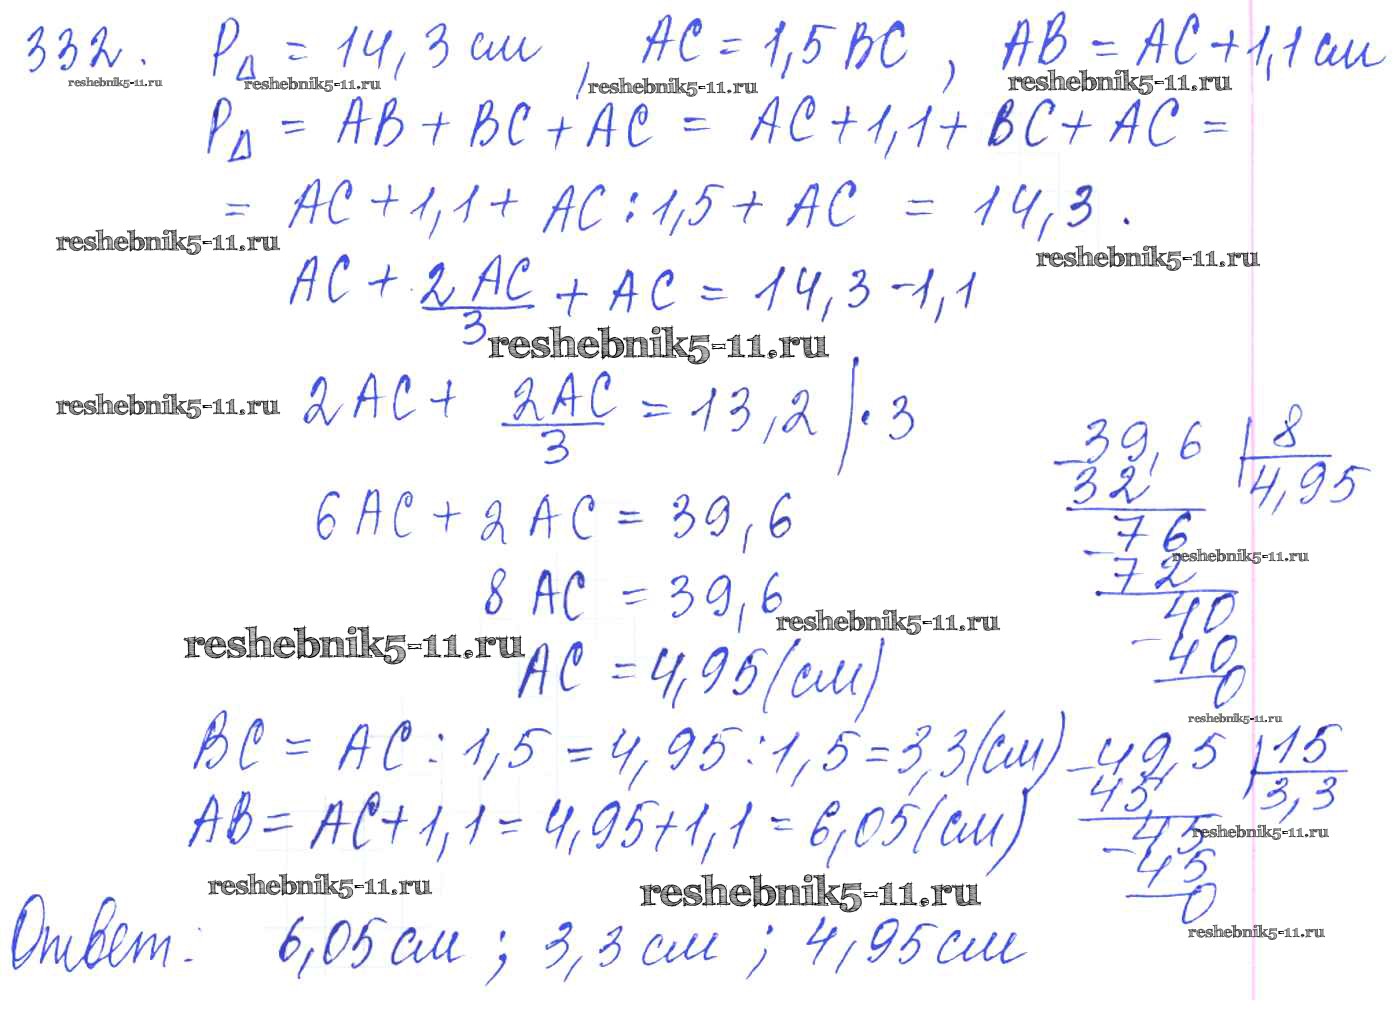 332. P△ = 14,3 см, AC = 1,5 BC, AB = AC + 1,1 см
reshebnik5-11.ru reshebnik5-11.ru reshebnik5-11.ru reshebnik5-11.ru
P△ = AB + BC + AC = AC + 1,1 + BC + AC =
= AC + 1,1 + AC : 1,5 + AC = 14,3.
reshebnik5-11.ru reshebnik5-11.ru
AC + 2AC/3 + AC = 14,3 - 1,1
reshebnik5-11.ru
reshebnik5-11.ru
2AC + 2AC/3 = 13,2 | · 3
6AC + 2AC = 39,6
8AC = 39,6
reshebnik5-11.ru
reshebnik5-11.ru
AC = 4,95 (см)
39,6 | 8
32 4,95
76
reshebnik5-11.ru
72
40
40
0
reshebnik5-11.ru
BC = AC : 1,5 = 4,95 : 1,5 = 3,3 (см)
AB = AC + 1,1 = 4,95 + 1,1 = 6,05 (см)
49,5 | 15
45 3,3
reshebnik5-11.ru
45
45
0
reshebnik5-11.ru reshebnik5-11.ru
reshebnik5-11.ru
Ответ: 6,05 см; 3,3 см; 4,95 см